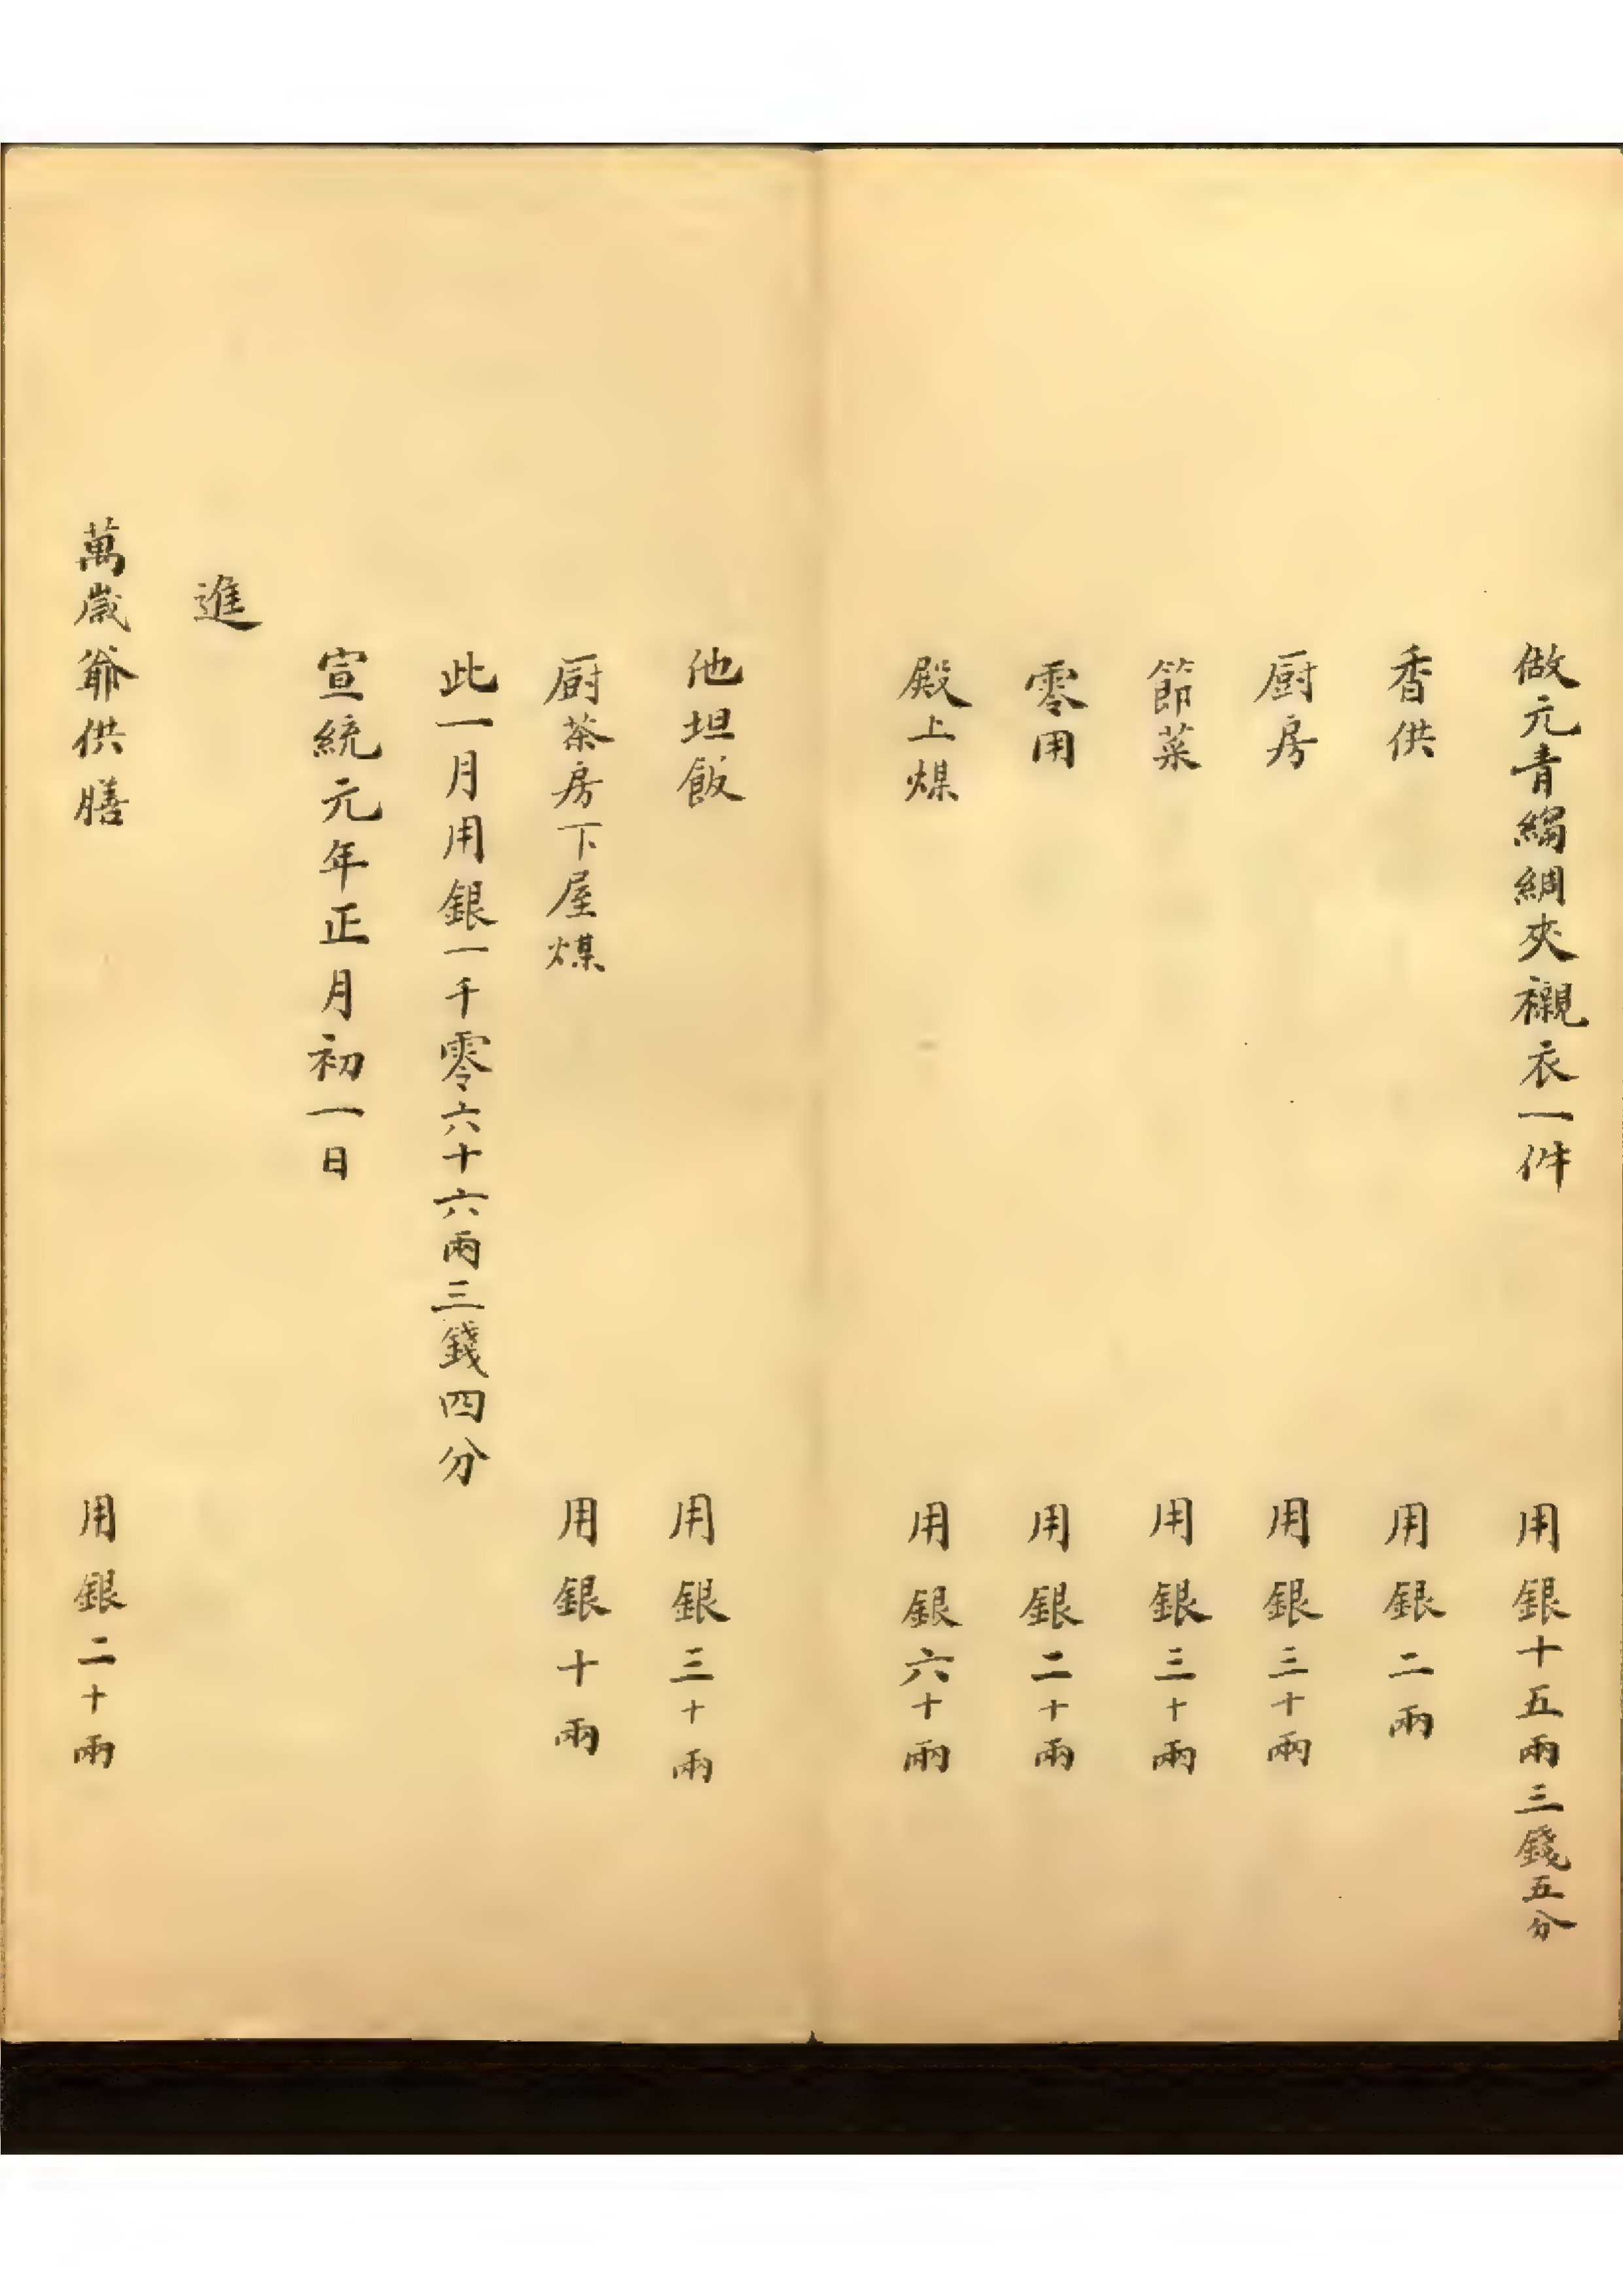 做元青縐綢夾襯衣一件 用銀十五兩三錢五分
香供 用銀二兩
厨房 用銀三十兩
節菜 用銀三十兩
零用 用銀二十兩
殿上煤 用銀六十兩
他坦飯 用銀三十兩
厨茶房下屋煤 用銀十兩
此一月用銀一千零六十六兩三錢四分
宣統元年正月初一日
進
萬歲爺供膳 用銀二十兩